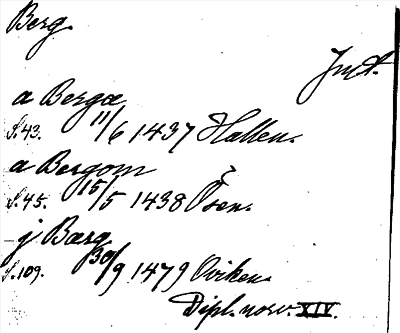 Berg.
Jmt.
a Bergæ
S.43. 11/6 1437 Hallen.
a Bergom
S.45. 15/5 1438 Ösen.
j Bærg
S.109. 30/9 1479 Oviken.
Dipl. norv. XIV.